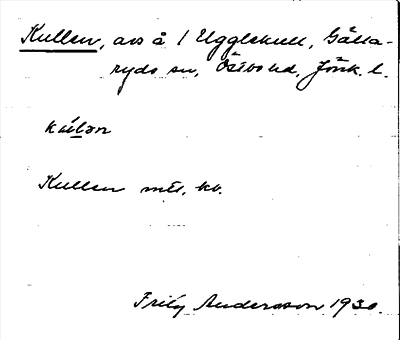 Kullen, avs å 1 Ugglekull, Gälla-
ryds sn, Östbo hd, Jönk. l.
kúlən
Kullen mtl, kv.
Fritz Andersson 1930.